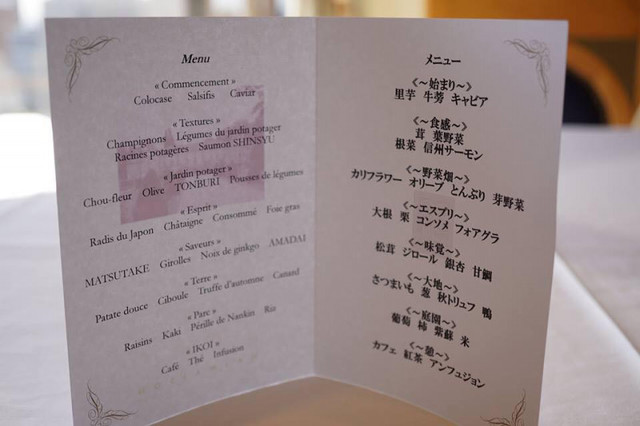 Menu
« Commencement »
Colocase Salsifis Caviar
« Textures »
Champignons Légumes du jardin potager
Racines potagères Saumon SHINSYU
« Jardin potager »
Chou-fleur Olive TONBURI Pousses de légumes
« Esprit »
Radis du Japon Châtaigne Consommé Foie gras
« Saveurs »
MATSUTAKE Girolles Noix de ginkgo AMADAI
« Terre »
Patate douce Ciboule Truffe d'automne Canard
« Parc »
Raisins Kaki Pérille de Nankin Riz
« IKOI »
Café Thé Infusion
メニュー
《～始まり～》
里芋 牛蒡 キャビア
《～食感～》
茸 葉野菜
根菜 信州サーモン
《～野菜畑～》
カリフラワー オリーブ とんぶり 芽野菜
《～エスプリ～》
大根 栗 コンソメ フォアグラ
《～味覚～》
松茸 ジロール 銀杏 甘鯛
《～大地～》
さつまいも 葱 秋トリュフ 鴨
《～庭園～》
葡萄 柿 紫蘇 米
《～憩～》
カフェ 紅茶 アンフュジョン